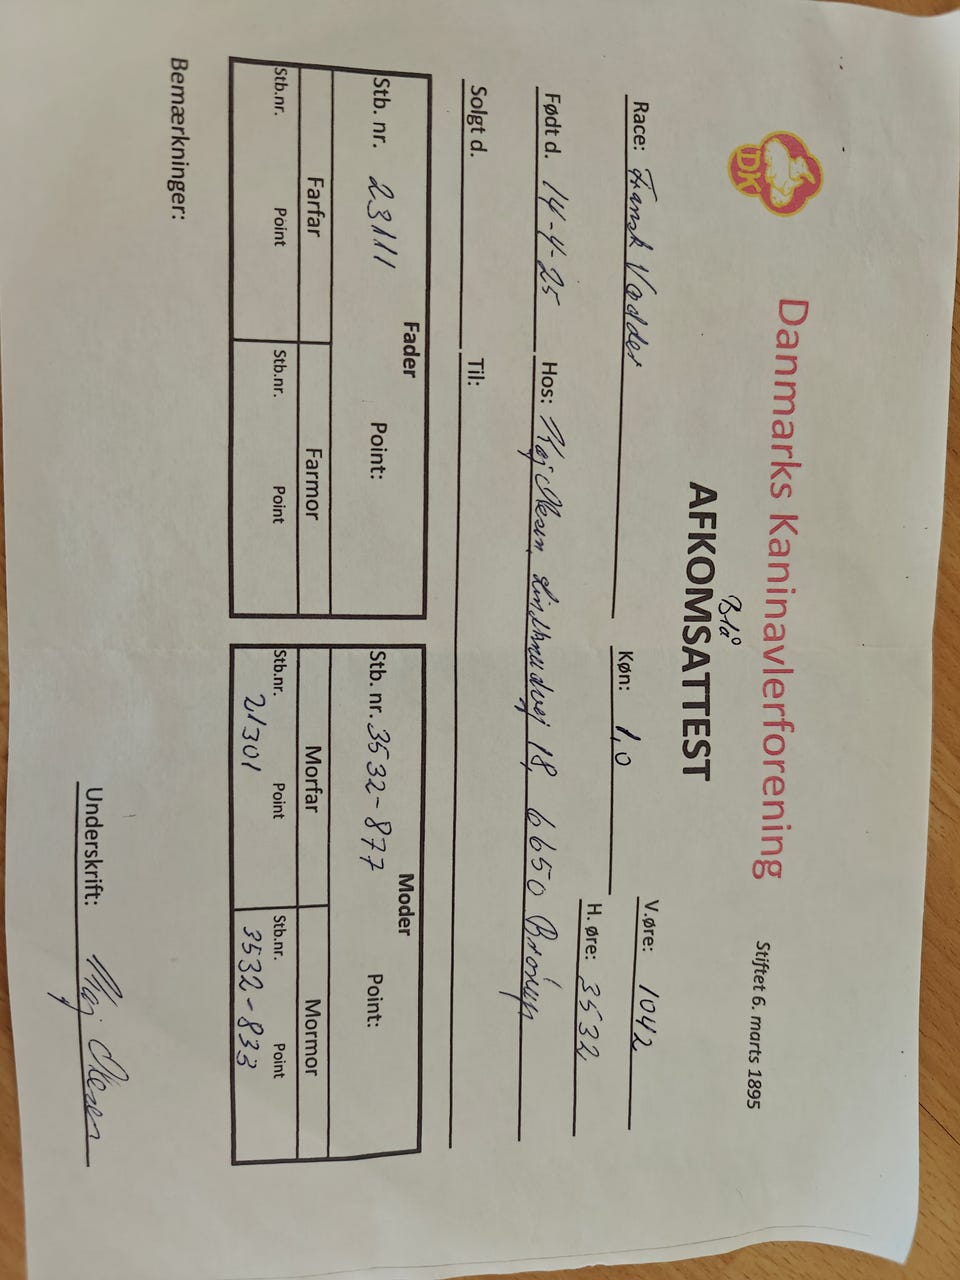 DK
Danmarks Kaninavlerforening
Stiftet 6. marts 1895
Blå
AFKOMSATTEST
Race: Fransk Vædder Køn: 1,0 V.øre: 1042
H. øre: 3532
Født d. 14-4-25 Hos: Kaj 18, 6650 Brørup
Solgt d. Til:
Fader Moder
Stb. nr. 23111 Point: Stb. nr. 3532-877 Point:
Farfar Farmor Morfar Mormor
Stb.nr. Point Stb.nr. Point Stb.nr. Point Stb.nr. Point
21301 3532-833
Bemærkninger:
Underskrift: Kaj